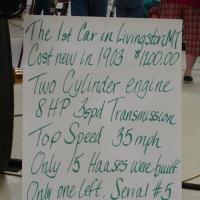 The 1st Car in Livingston, MT
Cost new in 1903 $1200.00
Two Cylinder engine
8 HP 3spd Transmission
Top Speed 35 mph
Only 15 Haases were built
Only one left. Serial #5